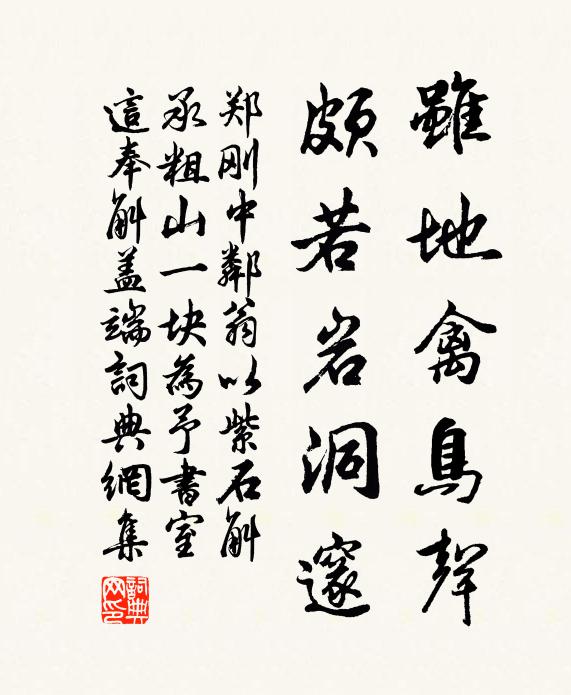 雖地禽鳥聲
頗若岩洞邃
郑刚中鄰翁以紫石斛
承粗山一块為予書室
這奉斛盖端詞典網集
詞典网印